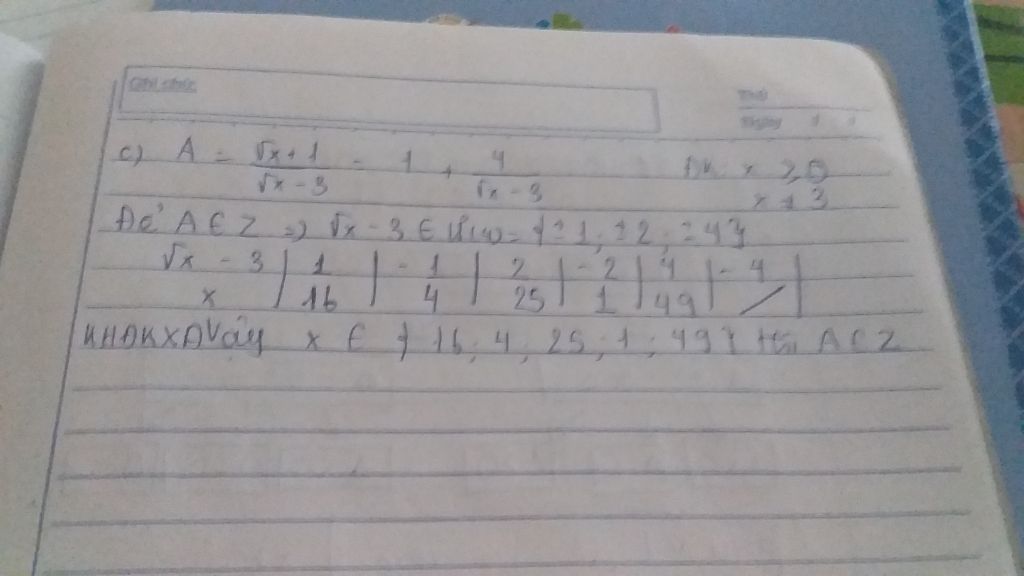 Ghi chú:
Thứ
Ngày
c) A = √x+1 / √x-3 = 1 + 4 / √x-3 ĐK: x ≥ 0
x ≠ 3
Để A ∈ Z => √x - 3 ∈ Ư(4) = {±1; ±2; ±4}
√x - 3 | 1 | -1 | 2 | -2 | 4 | -4 |
x | 16 | 4 | 25 | 1 | 49 | / |
KHĐKXĐ Vậy x ∈ { 16; 4; 25; 1; 49 } thì A ∈ Z